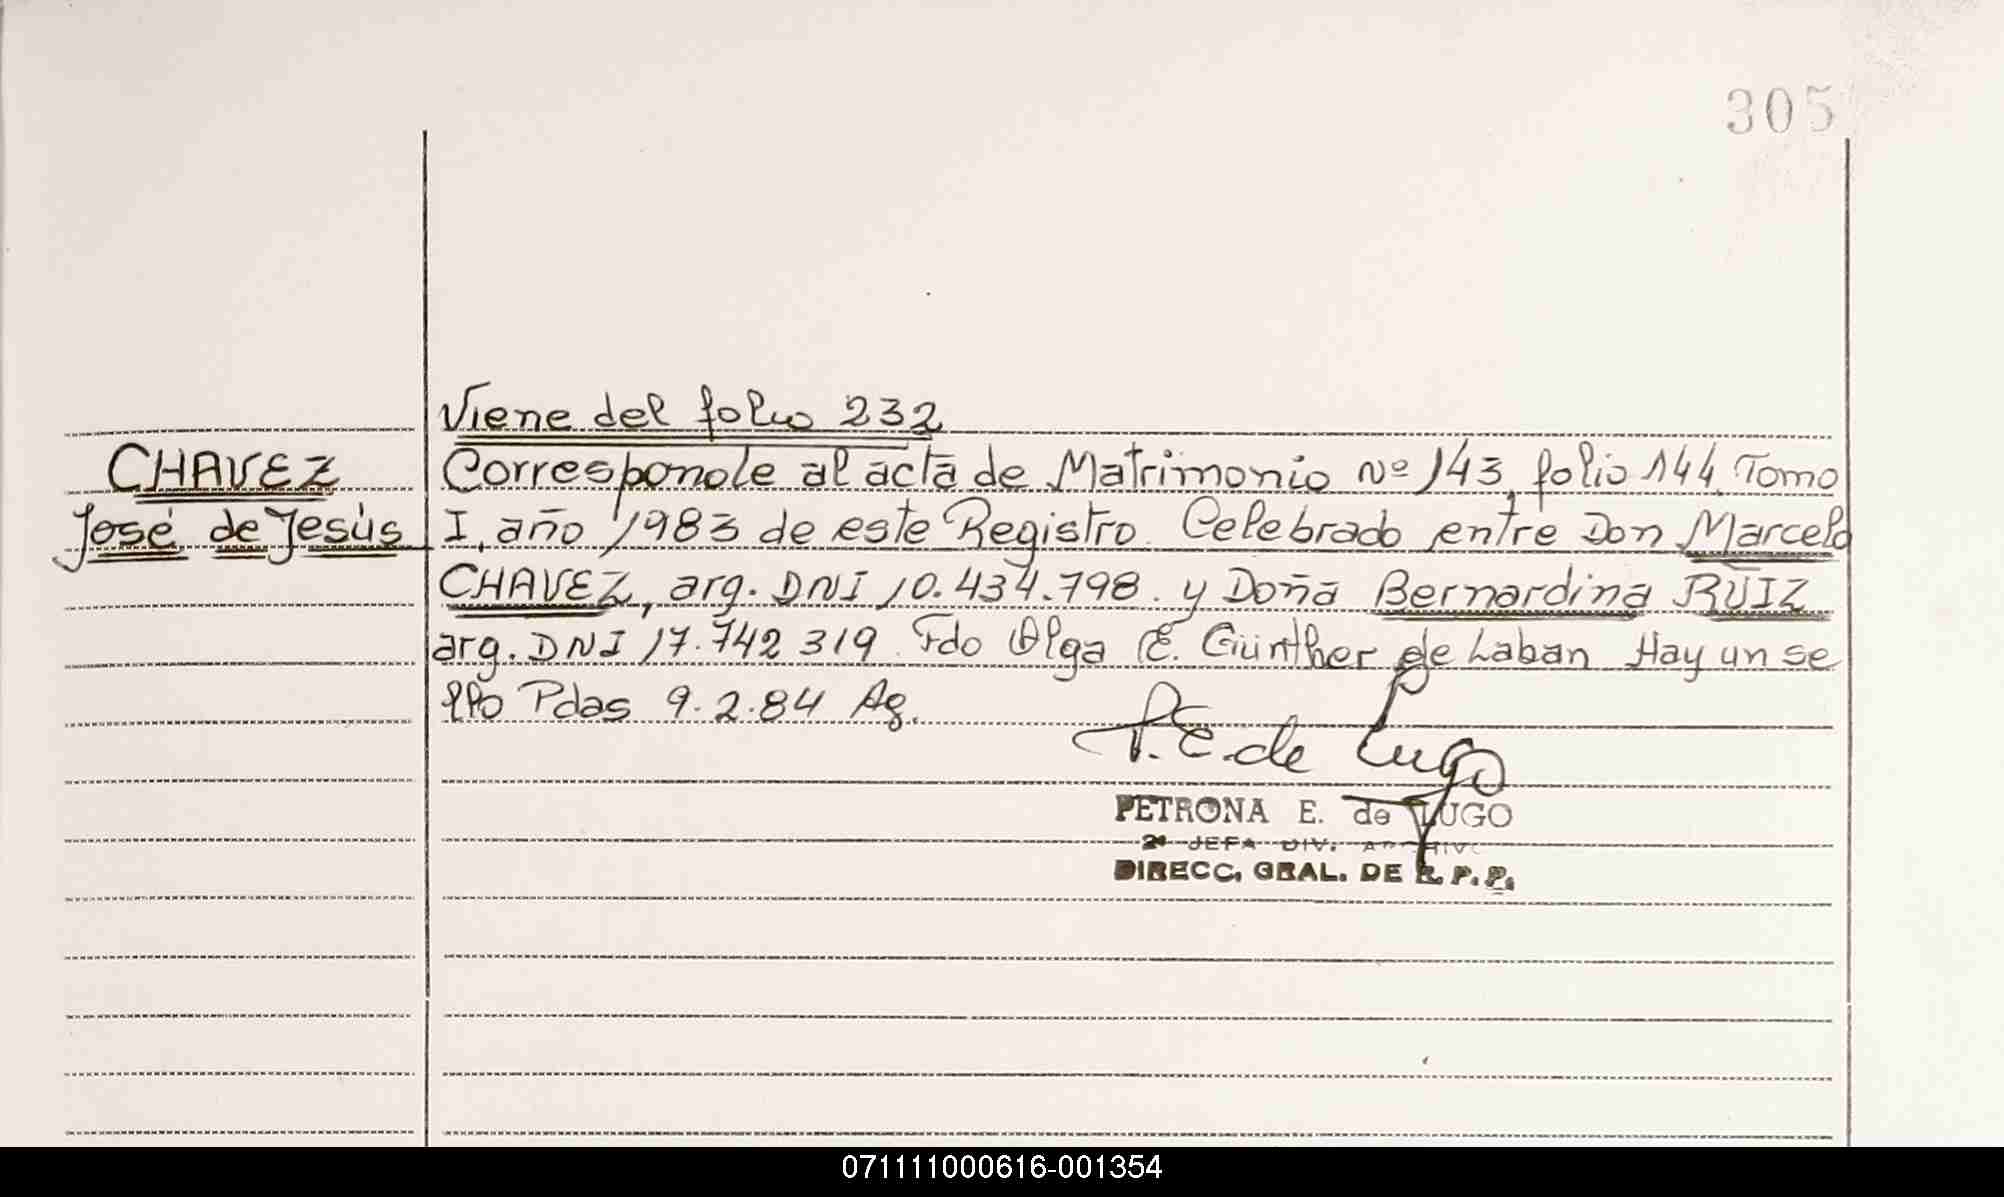 305
Viene del folio 232
CHAVEZ
José de Jesús
Corresponde al acta de Matrimonio Nº 143, folio 144, Tomo
I, año 1983 de este Registro. Celebrado entre Don Marcelo
CHAVEZ, arg. DNI 10.434.798. y Doña Bernardina RUIZ
arg. DNI 17.742 319. Fdo Olga E. Günther de Laban Hay un se
llo Pdas 9.2.84 Ag.
P. E. de Lugo
PETRONA E. de LUGO
2ª JEFA DIV. ARCHIVO
DIRECC. GRAL. DE R. P. P.
071111000616-001354